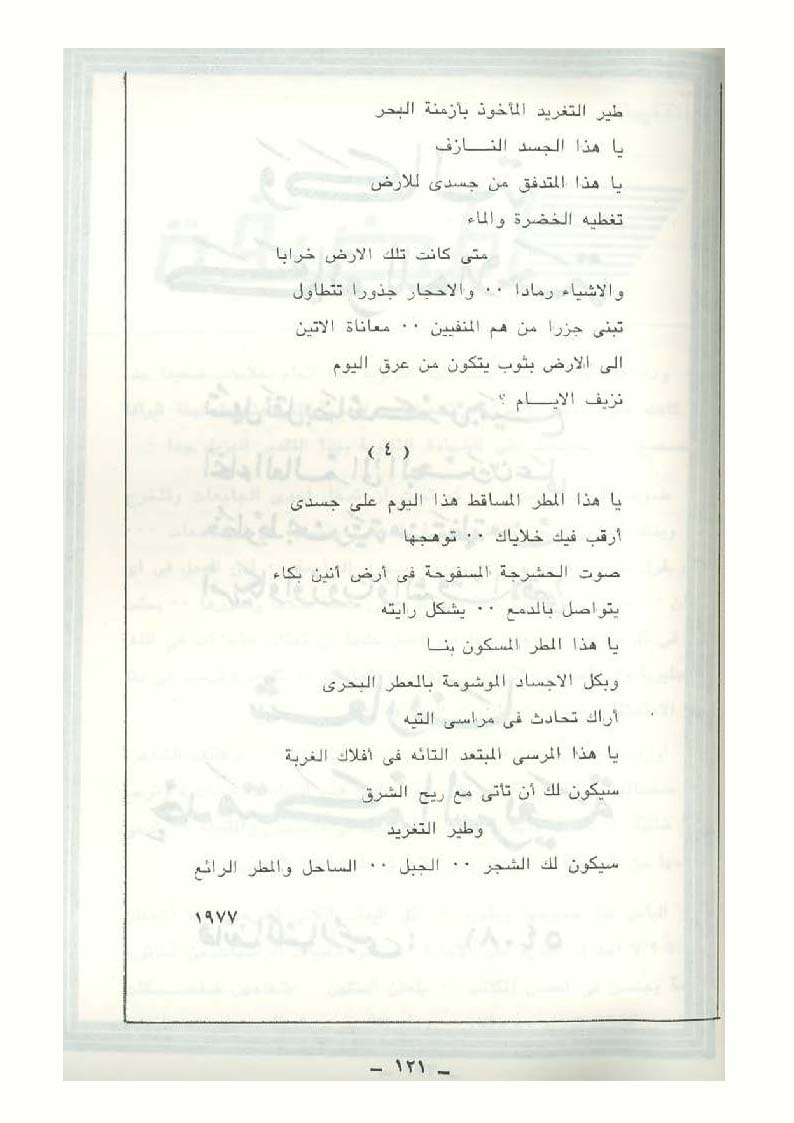 طير التغريد المأخوذ بأزمنة البحر
يا هذا الجسد النـــازف
يا هذا المتدفق من جسدى للارض
تغطيه الخضرة والماء
متى كانت تلك الارض خرابا
والاشياء رمادا ٠٠ والاحجار جذورا تتطاول
تبنى جزرا من هم المنفيين ٠٠ معاناة الاتين
الى الارض بثوب يتكون من عرق اليوم
نزيف الايـــام ؟
( ٤ )
يا هذا المطر المساقط هذا اليوم على جسدى
أرقب فيك خلاياك ٠٠ توهجها
صوت الحشرجة المسفوحة فى أرض أنين بكاء
يتواصل بالدمع ٠٠ يشكل رايته
يا هذا المطر المسكون بنـا
وبكل الاجساد الموشومة بالعطر البحرى
أراك تحادث فى مراسى التيه
يا هذا المرسى المبتعد التائه فى أفلاك الغربة
سيكون لك أن تأتى مع ريح الشرق
وطير التغريد
سيكون لك الشجر ٠٠ الجبل ٠٠ الساحل والمطر الرائع
١٩٧٧
- ١٢١ -